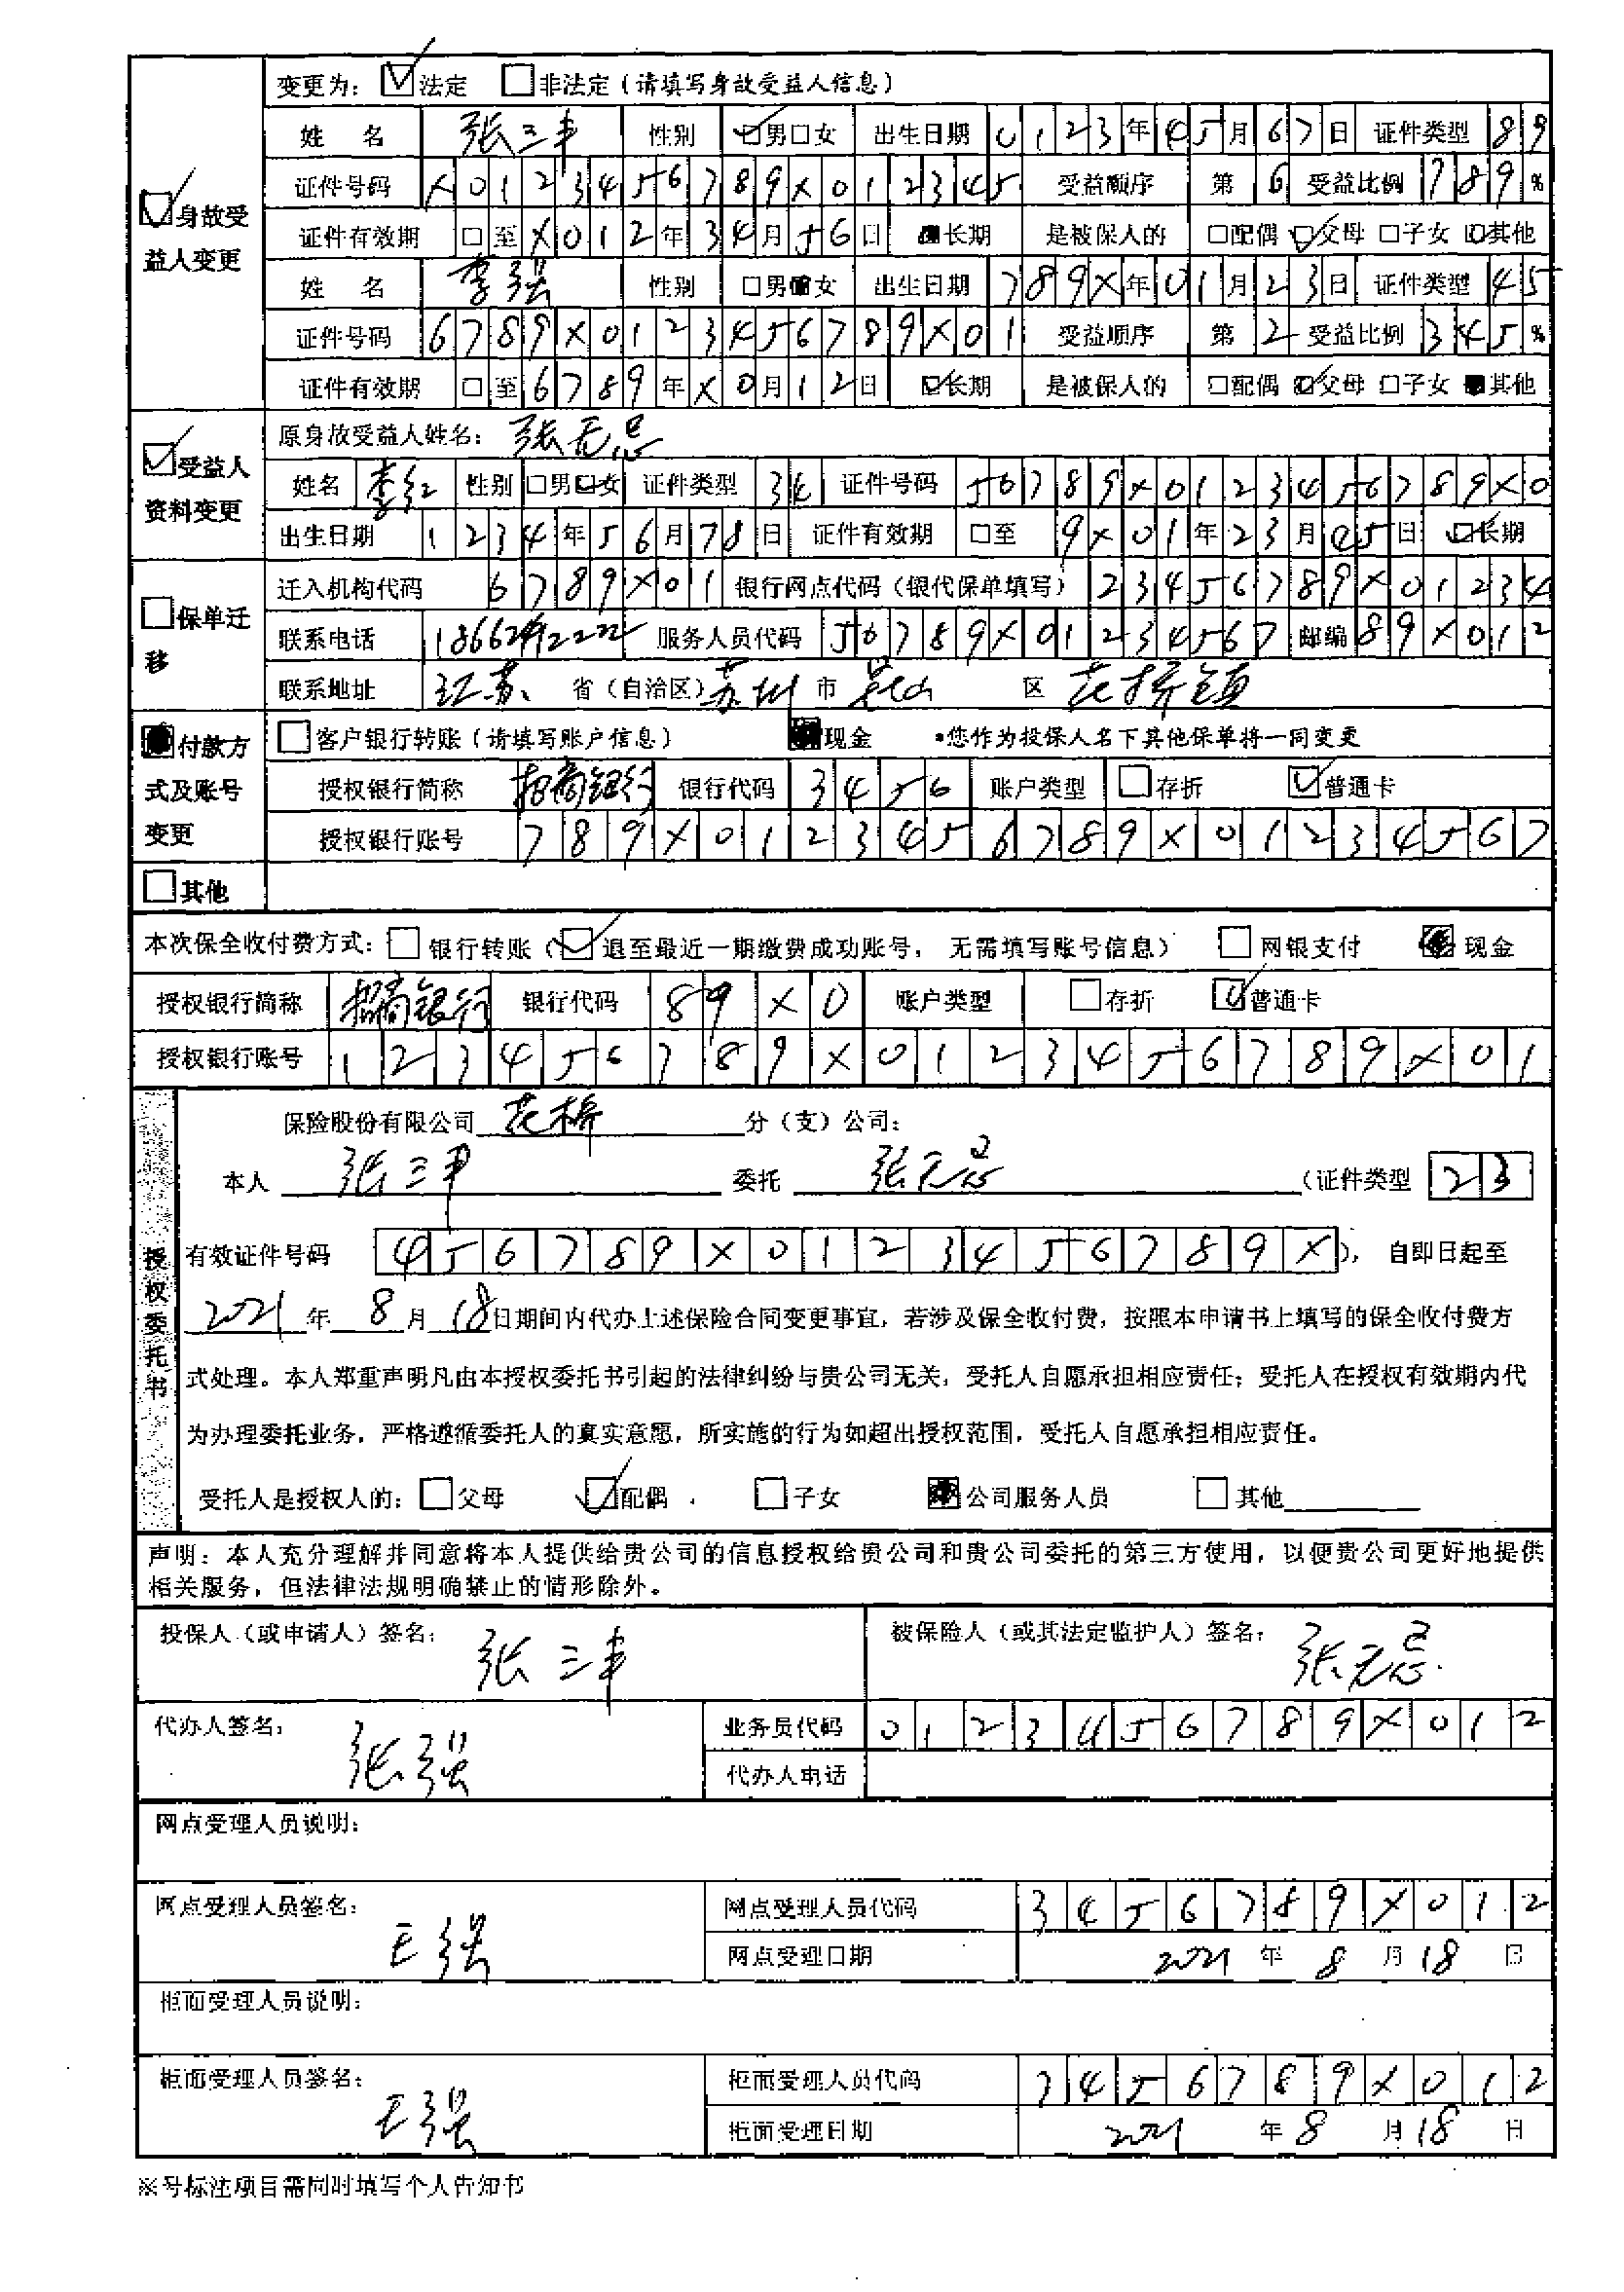 变更为： ☑法定 □非法定（请填写身故受益人信息）
☑身故受益人变更
姓 名 张三丰 性别 ☑男□女 出生日期 0123年45月67日 证件类型 89
证件号码 X0123456789X012345 受益顺序 第6 受益比例 789%
证件有效期 □至X012年34月56日 ■长期 是被保人的 □配偶☑父母□子女☑其他
姓 名 李强 性别 □男■女 出生日期 789X年01月23日 证件类型 45
证件号码 6789X0123456789X01 受益顺序 第2 受益比例 345%
证件有效期 □至6789年X0月12日 ☑长期 是被保人的 □配偶☑父母□子女■其他
☑受益人资料变更
原身故受益人姓名： 张无忌
姓名 李红 性别 □男☑女 证件类型 34 证件号码 56789X0123456789X0
出生日期 1234年56月78日 证件有效期 □至 9X01年23月45日 ☑长期
□保单迁移
迁入机构代码 6789X01 银行网点代码（银代保单填写） 23456789X01234
联系电话 服务人员代码 56789X01234567 邮编 89X012
联系地址 江苏 省（自治区）苏州 市 昆山 区 花桥镇
■付款方式及账号变更
□客户银行转账（请填写账户信息） ■现金 *您作为投保人名下其他保单将一同变更
授权银行简称 招商银行 银行代码 3456 账户类型 □存折 ☑普通卡
授权银行账号 789X0123456789X01234567
□其他
本次保全收付费方式：□银行转账（☑退至最近一期缴费成功账号， 无需填写账号信息） □网银支付 ■现金
授权银行简称 招商银行 银行代码 89X0 账户类型 □存折 ☑普通卡
授权银行账号 123456789X0123456789X01
授权委托书
保险股份有限公司 花桥 分（支）公司：
本人 张三丰 委托 张无忌 （证件类型 23
有效证件号码 456789X0123456789X）， 自即日起至
2021 年 8 月 18日期间内代办上述保险合同变更事宜，若涉及保全收付费，按照本申请书上填写的保全收付费方
式处理。本人郑重声明凡由本授权委托书引起的法律纠纷与贵公司无关，受托人自愿承担相应责任；受托人在授权有效期内代
为办理委托业务，严格遵循委托人的真实意愿，所实施的行为如超出授权范围，受托人自愿承担相应责任。
受托人是授权人的：□父母 ☑配偶 □子女 ■公司服务人员 □其他
声明：本人充分理解并同意将本人提供给贵公司的信息授权给贵公司和贵公司委托的第三方使用，以便贵公司更好地提供
相关服务，但法律法规明确禁止的情形除外。
投保人（或申请人）签名： 张三丰 被保险人（或其法定监护人）签名： 张无忌
代办人签名： 张强 业务员代码 0123456789X012
代办人电话
网点受理人员说明：
网点受理人员签名： 王强 网点受理人员代码 3456789X012
网点受理日期 2021 年 8 月 18 日
柜面受理人员说明：
柜面受理人员签名： 王强 柜面受理人员代码 3456789X012
柜面受理日期 2021 年 8 月 18 日
※号标注项目需同时填写个人告知书